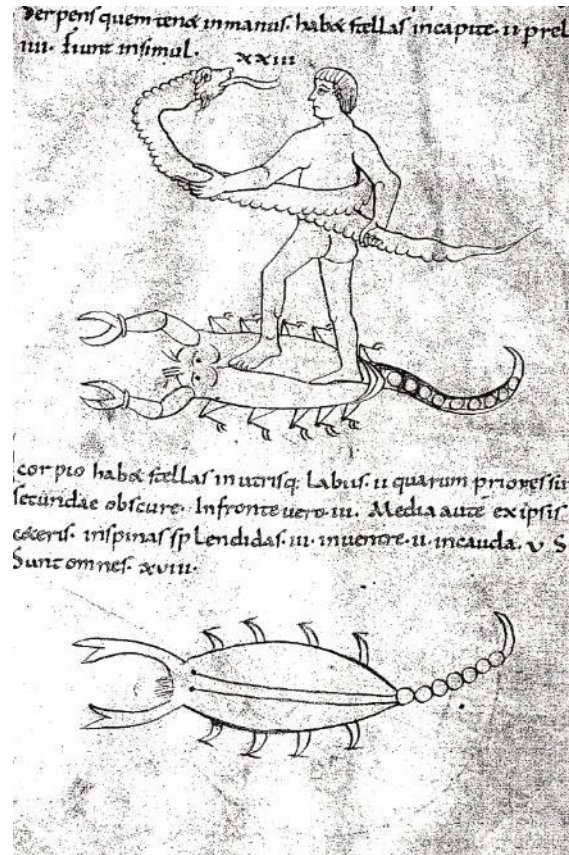 Serpens quem tenet in manus. habet stellas in capite. ii prel
iiii. fiunt insimul.
xxiii
corpio habet stellas in utrisq; labus. ii quarum priores sin
secundae obscure. In fronte uero. iii. Media aute exipsis
ceteris. inspinas splendidas. iii. inuentre. ii. incauda. v S
Sunt omnes. xviii.